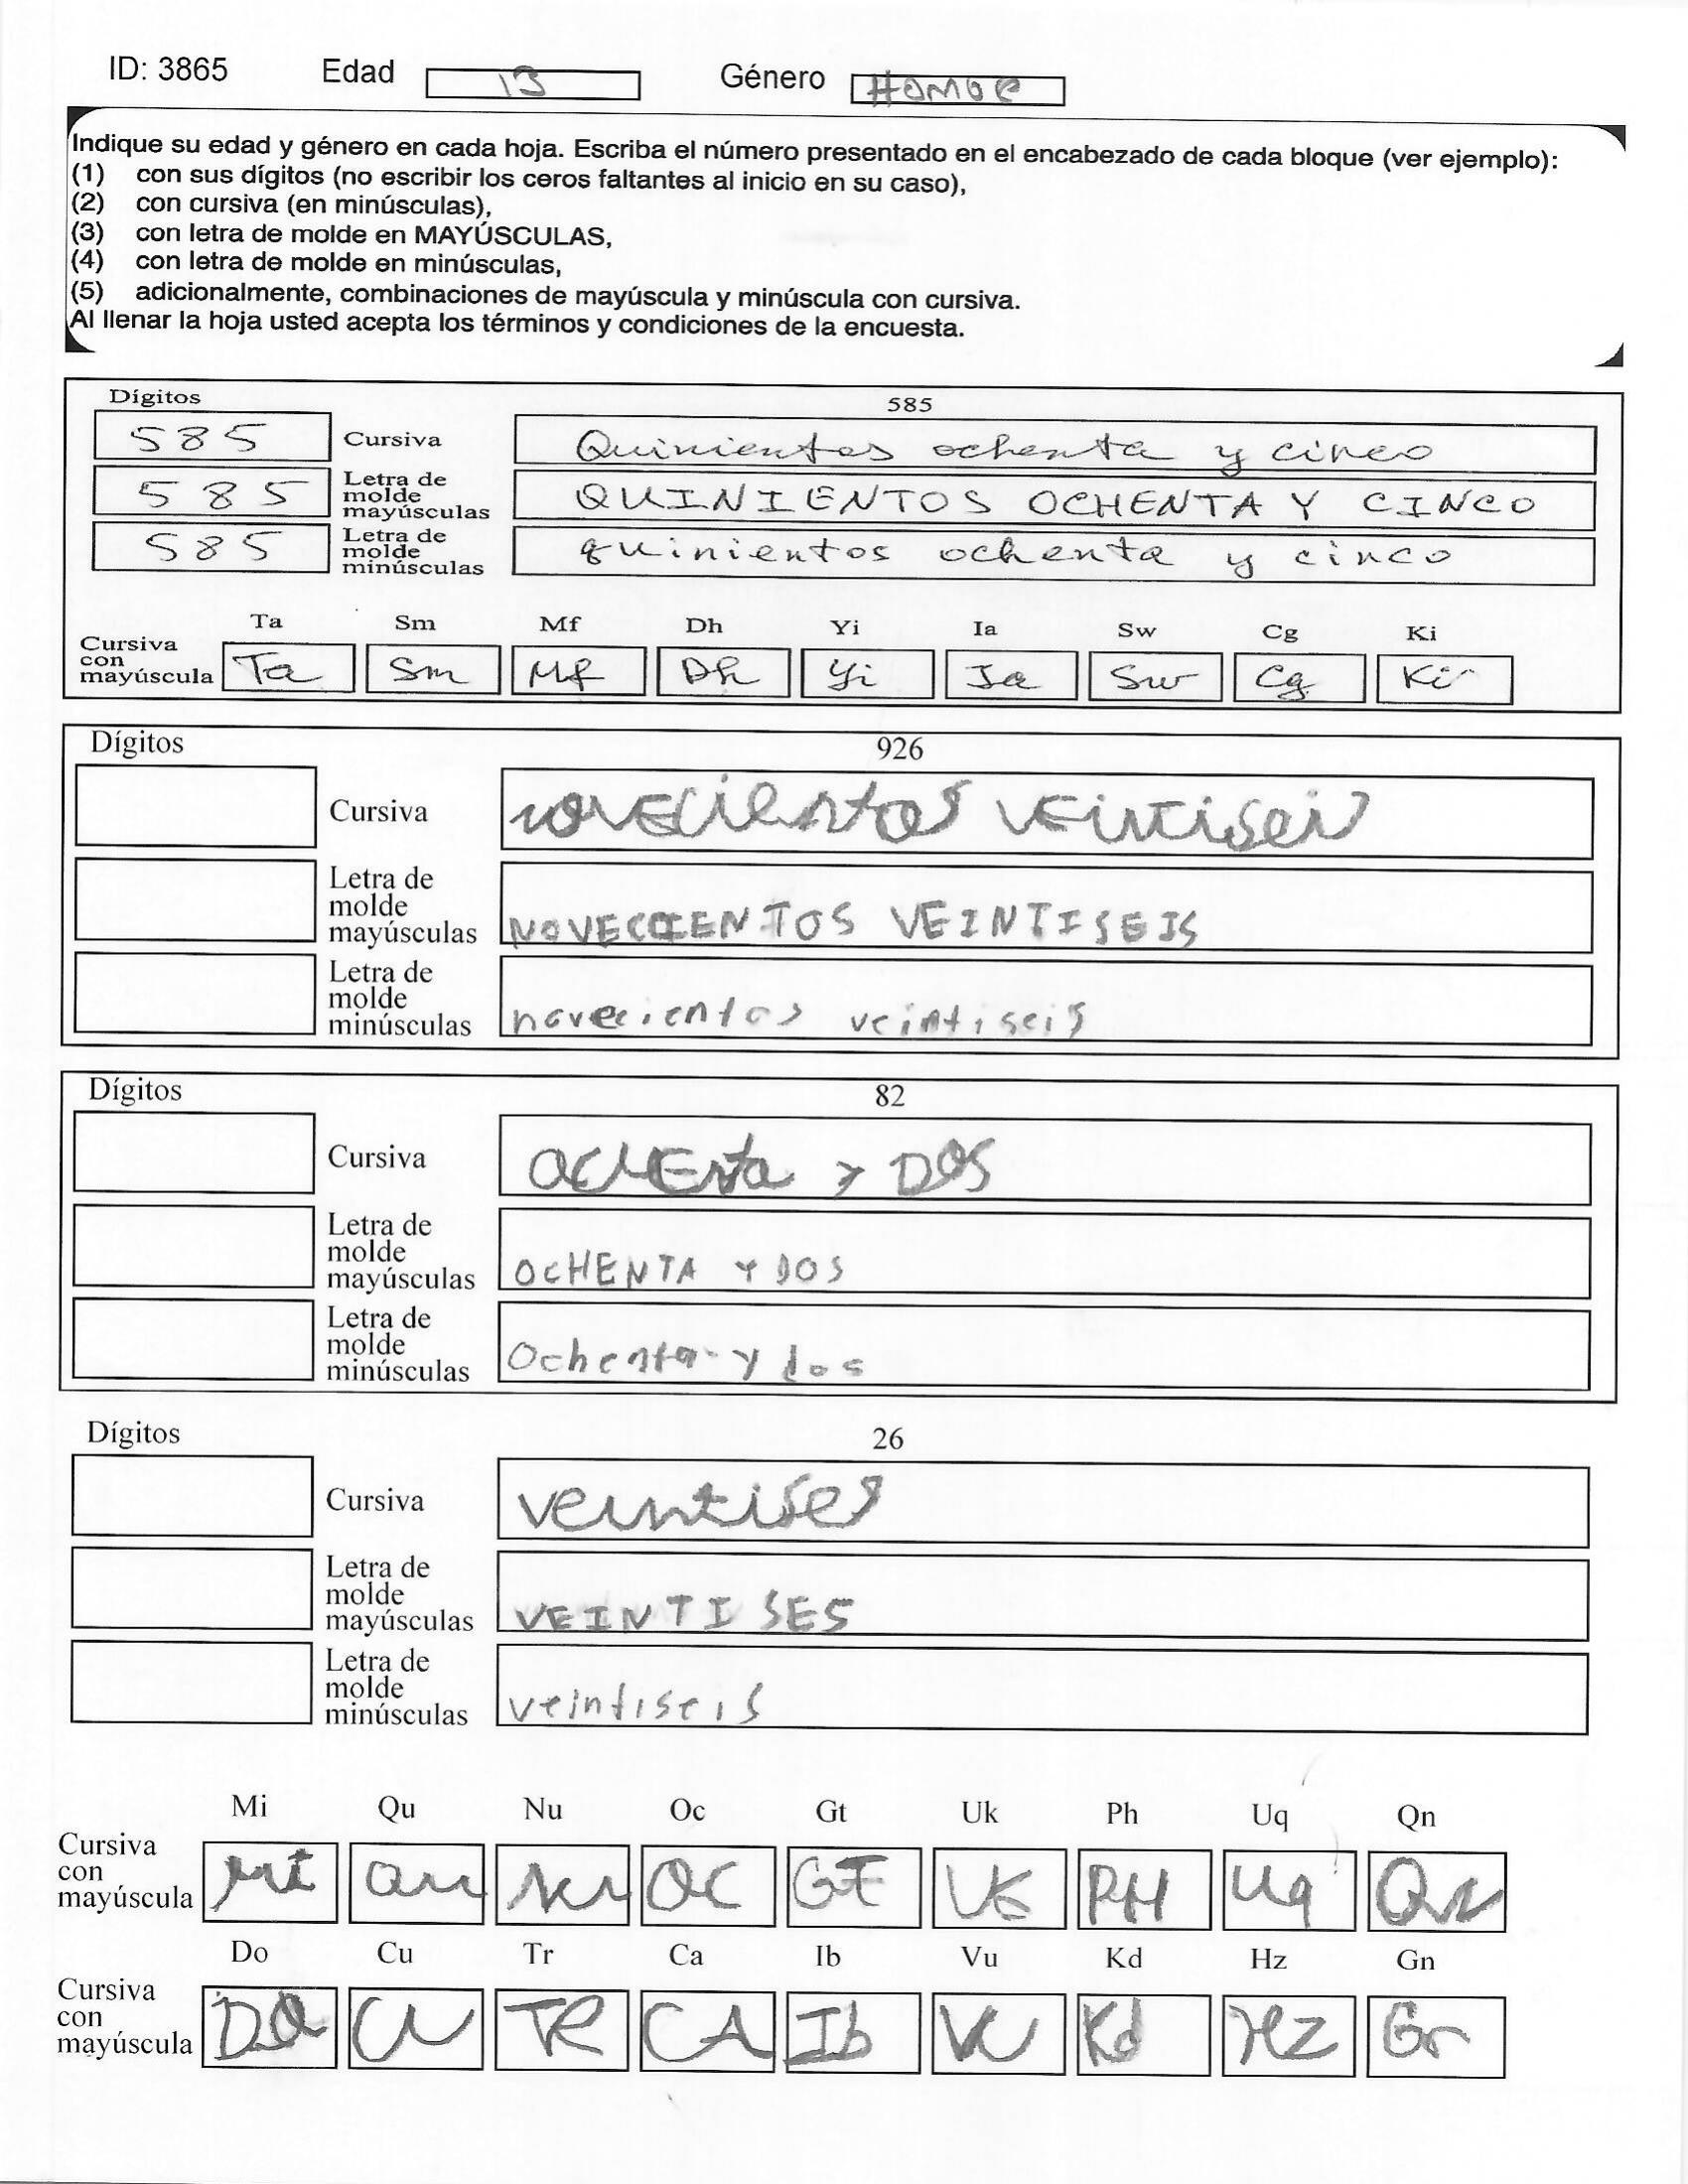 ID: 3865 Edad 13 Género HOMBRE
Indique su edad y género en cada hoja. Escriba el número presentado en el encabezado de cada bloque (ver ejemplo):
(1) con sus dígitos (no escribir los ceros faltantes al inicio en su caso),
(2) con cursiva (en minúsculas),
(3) con letra de molde en MAYÚSCULAS,
(4) con letra de molde en minúsculas,
(5) adicionalmente, combinaciones de mayúscula y minúscula con cursiva.
Al llenar la hoja usted acepta los términos y condiciones de la encuesta.
Dígitos 585
585 Cursiva Quinientos ochenta y cinco
585 Letra de molde mayúsculas QUINIENTOS OCHENTA Y CINCO
585 Letra de molde minúsculas quinientos ochenta y cinco
Ta Sm Mf Dh Yi Ia Sw Cg Ki
Cursiva con mayúscula Ta Sm Mf Dh Yi Ia Sw Cg Ki
Dígitos 926
Cursiva novecientos veintiseis
Letra de molde mayúsculas NOVECIENTOS VEINTISEIS
Letra de molde minúsculas novecientos veintiseis
Dígitos 82
Cursiva OCHENta y DOS
Letra de molde mayúsculas OCHENTA Y DOS
Letra de molde minúsculas Ochenta y dos
Dígitos 26
Cursiva veintises
Letra de molde mayúsculas VEINTISES
Letra de molde minúsculas veintiseis
Mi Qu Nu Oc Gt Uk Ph Uq Qn
Cursiva con mayúscula Mi Qu Nu OC Gt Uk PH Uq Qn
Do Cu Tr Ca Ib Vu Kd Hz Gn
Cursiva con mayúscula DO Cu TR CA Ib Vu Kd Hz Gn